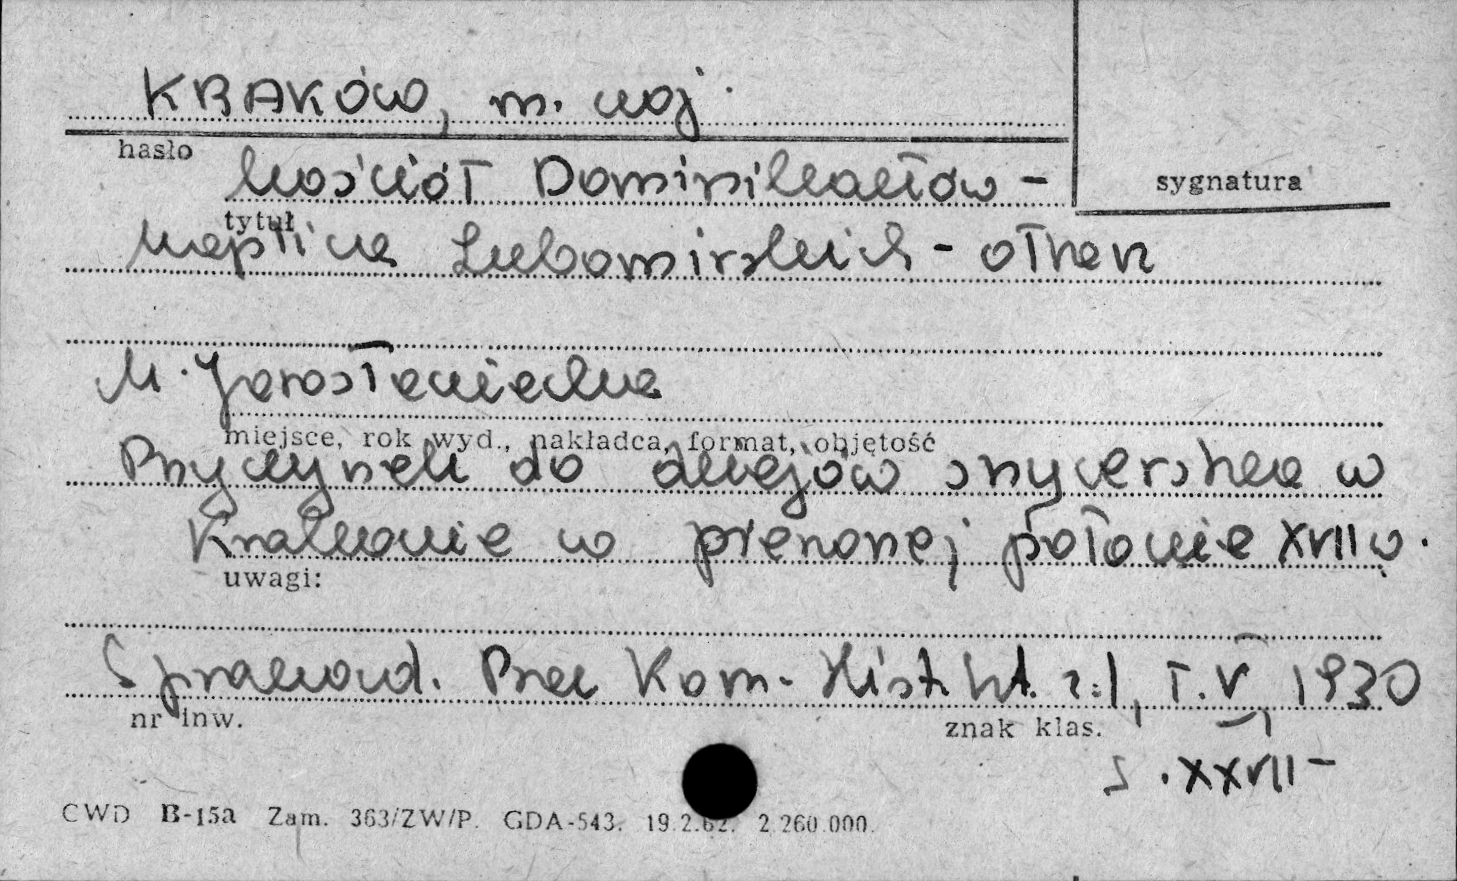 KRAKÓW, m. woj.
hasło
sygnatura
kościół Dominikanów -
tytuł
kaplica Lubomirskich - ołtarz
M. Jarosławiecka
miejsce, rok wyd., nakładca, format, objętość
Przyczynek do dziejów snycerska w
Krakowie w pierwszej połowie XVII w.
uwagi:
Sprawozd. Prac Kom. Hist. Szt. z. 1, T. V, 1930
nr inw.
znak klas.
s. XXVII -
CWD B-15a Zam. 363/ZW/P. GDA-543. 19.2.62. 2.260.000.